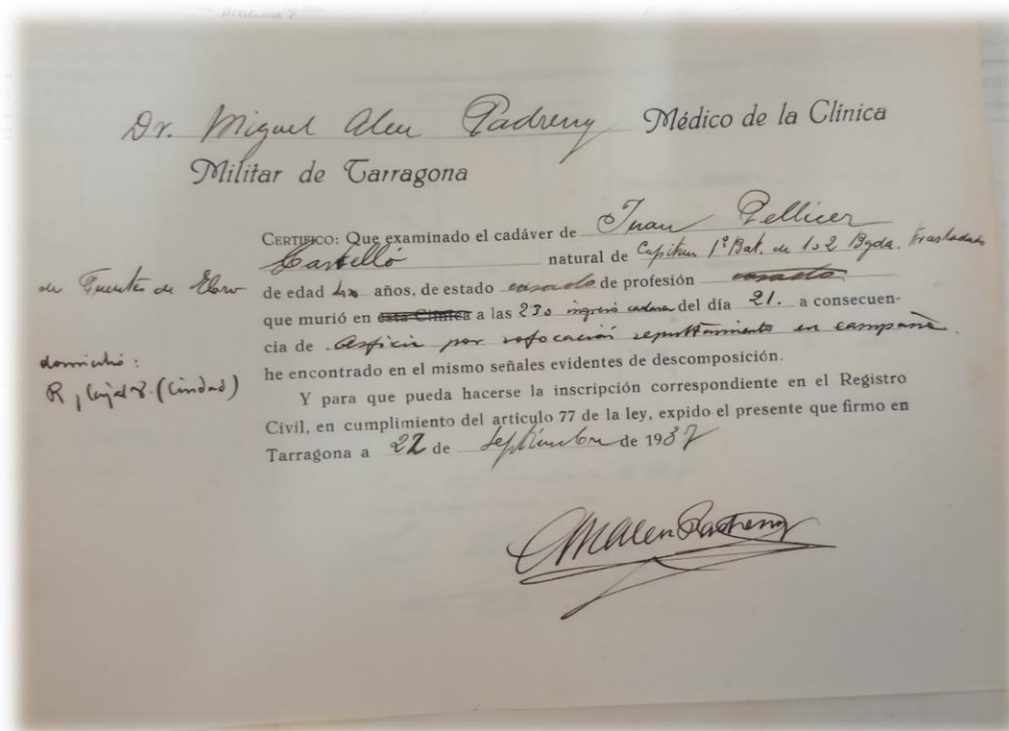 Dr. Miguel Aleu Padreny Médico de la Clínica
Militar de Tarragona
CERTIFICO: Que examinado el cadáver de Juan Pellicer
Castelló natural de Capitan 1º Bat. de 102 Bgda. trasladado
de Fuentes de Ebro de edad años, de estado casado de profesión casado
que murió en esta Clínica a las 23o ingresó cadaver del día 21. a consecuen-
cia de Asficia por sofocación sepultamiento en campaña.
he encontrado en el mismo señales evidentes de descomposición.
domicilio:
R y Cajal (Ciudad)
Y para que pueda hacerse la inscripción correspondiente en el Registro
Civil, en cumplimiento del artículo 77 de la ley, expido el presente que firmo en
Tarragona a 22 de Septiembre de 1937
MAleu Padreny